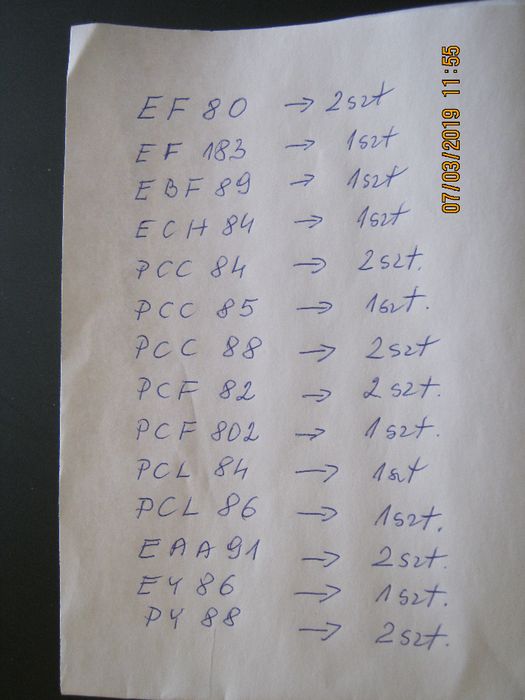 EF 80 → 2szt
EF 183 → 1szt
EBF 89 → 1szt
ECH 84 → 1szt
PCC 84 → 2szt.
PCC 85 → 1szt.
PCC 88 → 2szt
PCF 82 → 2szt.
PCF 802 → 1szt.
PCL 84 → 1szt
PCL 86 → 1szt.
EAA91 → 2szt.
EY 86 → 1szt.
PY 88 → 2szt.
07/03/2019 11:55